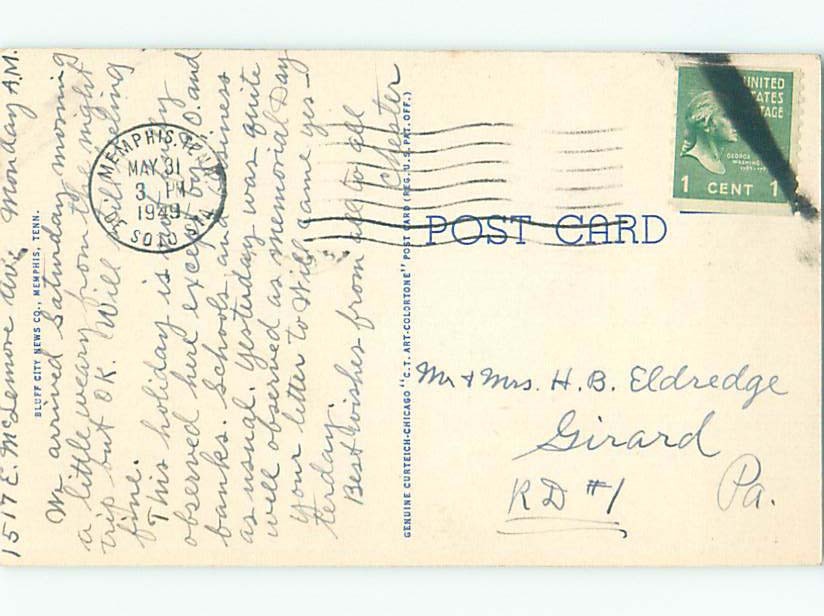 1517 E. McLemore Av. Monday A.M.
BLUFF CITY NEWS CO., MEMPHIS, TENN.
We arrived Saturday morning
a little weary from the night
trip but OK. Will still feeling
fine.
This holiday is only
observed here except by P.O. and
banks. Schools and business
as usual. Yesterday was quite
well observed as Memorial Day
Your letter to Will came yes-
terday.
Best wishes from all to all
Chester
MEMPHIS, TENN.
MAY 31
3 PM
1949
DE SOTO STA.
GENUINE CURTEICH-CHICAGO "C.T. ART-COLORTONE" POST CARD (REG. U.S. PAT. OFF.)
UNITED
STATES
POSTAGE
GEORGE
WASHINGTON
1 CENT 1
POST CARD
Mr & Mrs. H. B. Eldredge
Girard
RD #1 Pa.